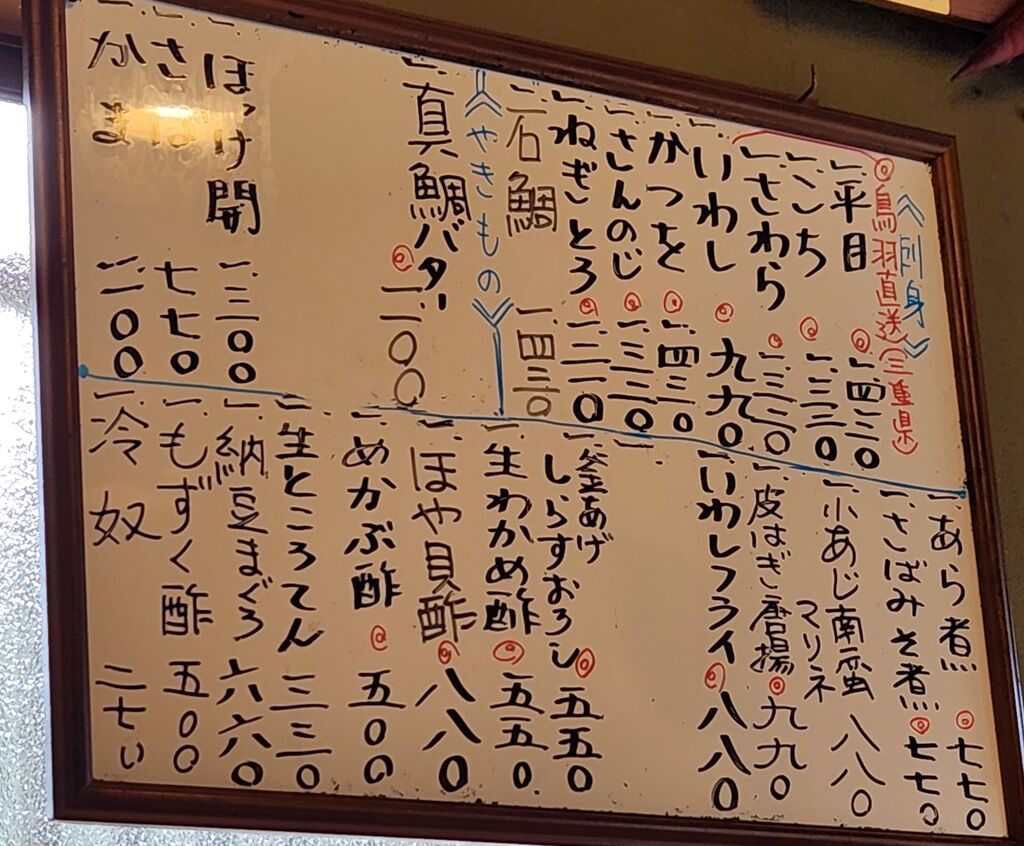 《刺身》
◎鳥羽直送(三重県)
一、平目 ◎一、四三〇
一、こち ◎一、三二〇
一、さわら ◎一、三二〇
一、いわし ◎九九〇
一、かつを ◎一、四三〇
一、さんのじ ◎一、三二〇
一、ねぎとろ ◎一、二一〇
一、石鯛 一、四三〇
《やきもの》
一、真鯛バター ◎一、一〇〇
一、ほっけ開 一、三〇〇
一、さば 七七〇
一、かま 一、一〇〇
一、あら煮 ◎七七〇
一、さばみそ煮 ◎七七〇
一、小あじ南蛮マリネ 八八〇
一、皮はぎ唐揚 ◎九九〇
一、いわしフライ ◎八八〇
一、
一、釜あげしらすおろし ◎五五〇
一、生わかめ酢 ◎五五〇
一、ほや貝酢 ◎八八〇
めかぶ酢 ◎五〇〇
一、生ところてん 三三〇
一、納豆まぐろ 六六〇
一、もずく酢 五〇〇
一、冷奴 二七〇